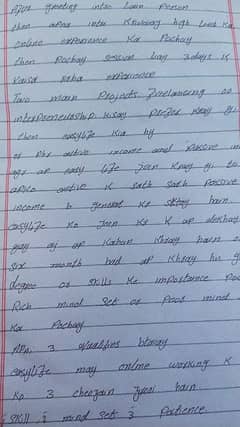 Apni greeting intro Learn Person
then apna intro Knowing high level Ka
Online experience Ka Pochay
then Pochay session may 3 days K
Kaisa raha experience
Two main Projects Freelancing or
interpreneurship Kisay Prefer Kray gi
then easylife Kia hy
or Phr active income and Passive in
agr ap easy life Join Kray gi to
apko active K sath sath passive
income b generat Ka Skhay hain
easylife Ko Join Kr K ap dekhay
gay aj ap Kahan Khray hain or
Six month bad ap Khray hn g
degree or skills Ke importance Poc
Rich mind Set or Poor mind
Ka Pochay
Apni 3 qualities btaay
easylife may online working K
Ko 3 cheezain Zrori hain
Skill, mind sets, Patience